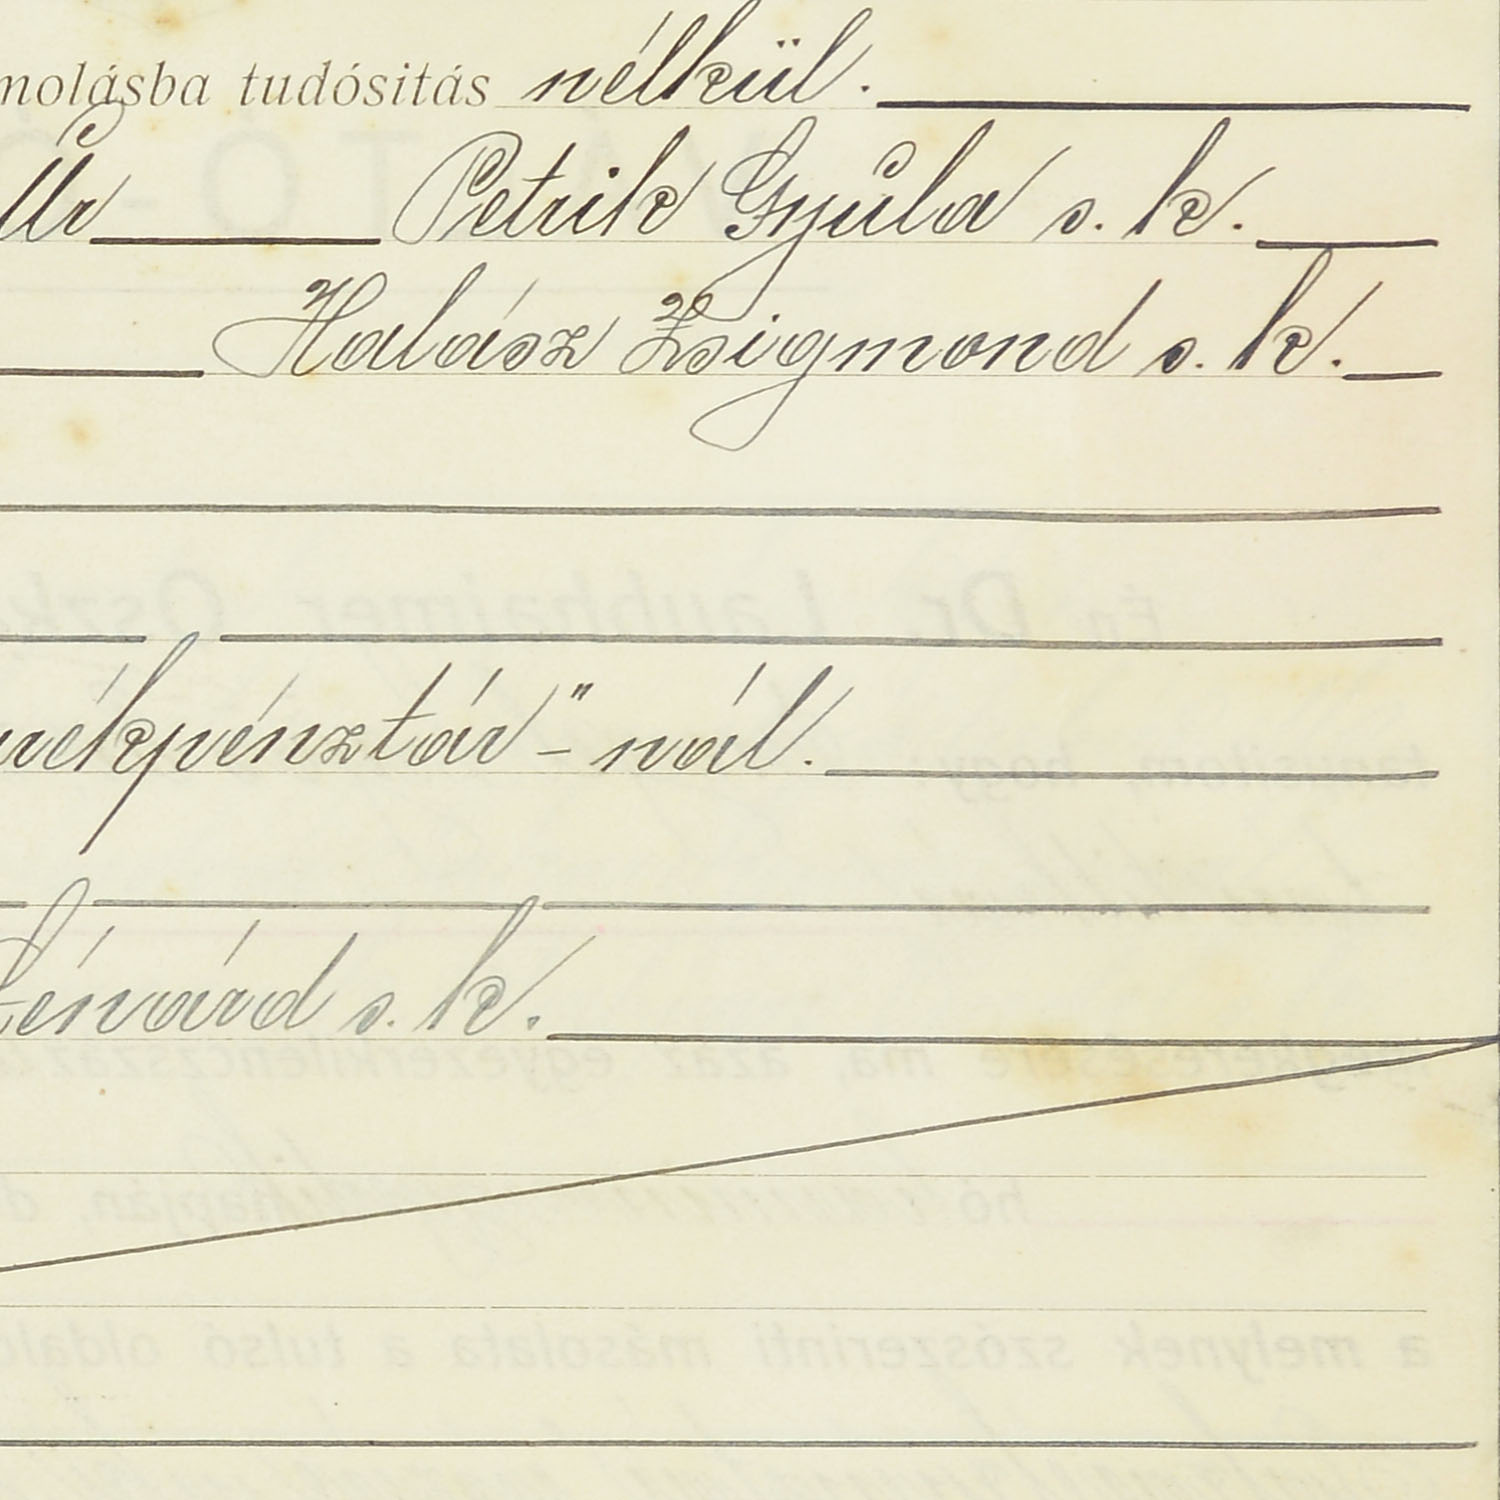 molásba tudósitás nélkül.
Úr Petrik Gyula s. k.
Halász Zsigmond s. k.
rékpénztár" - nál.
Lénárd s. k.